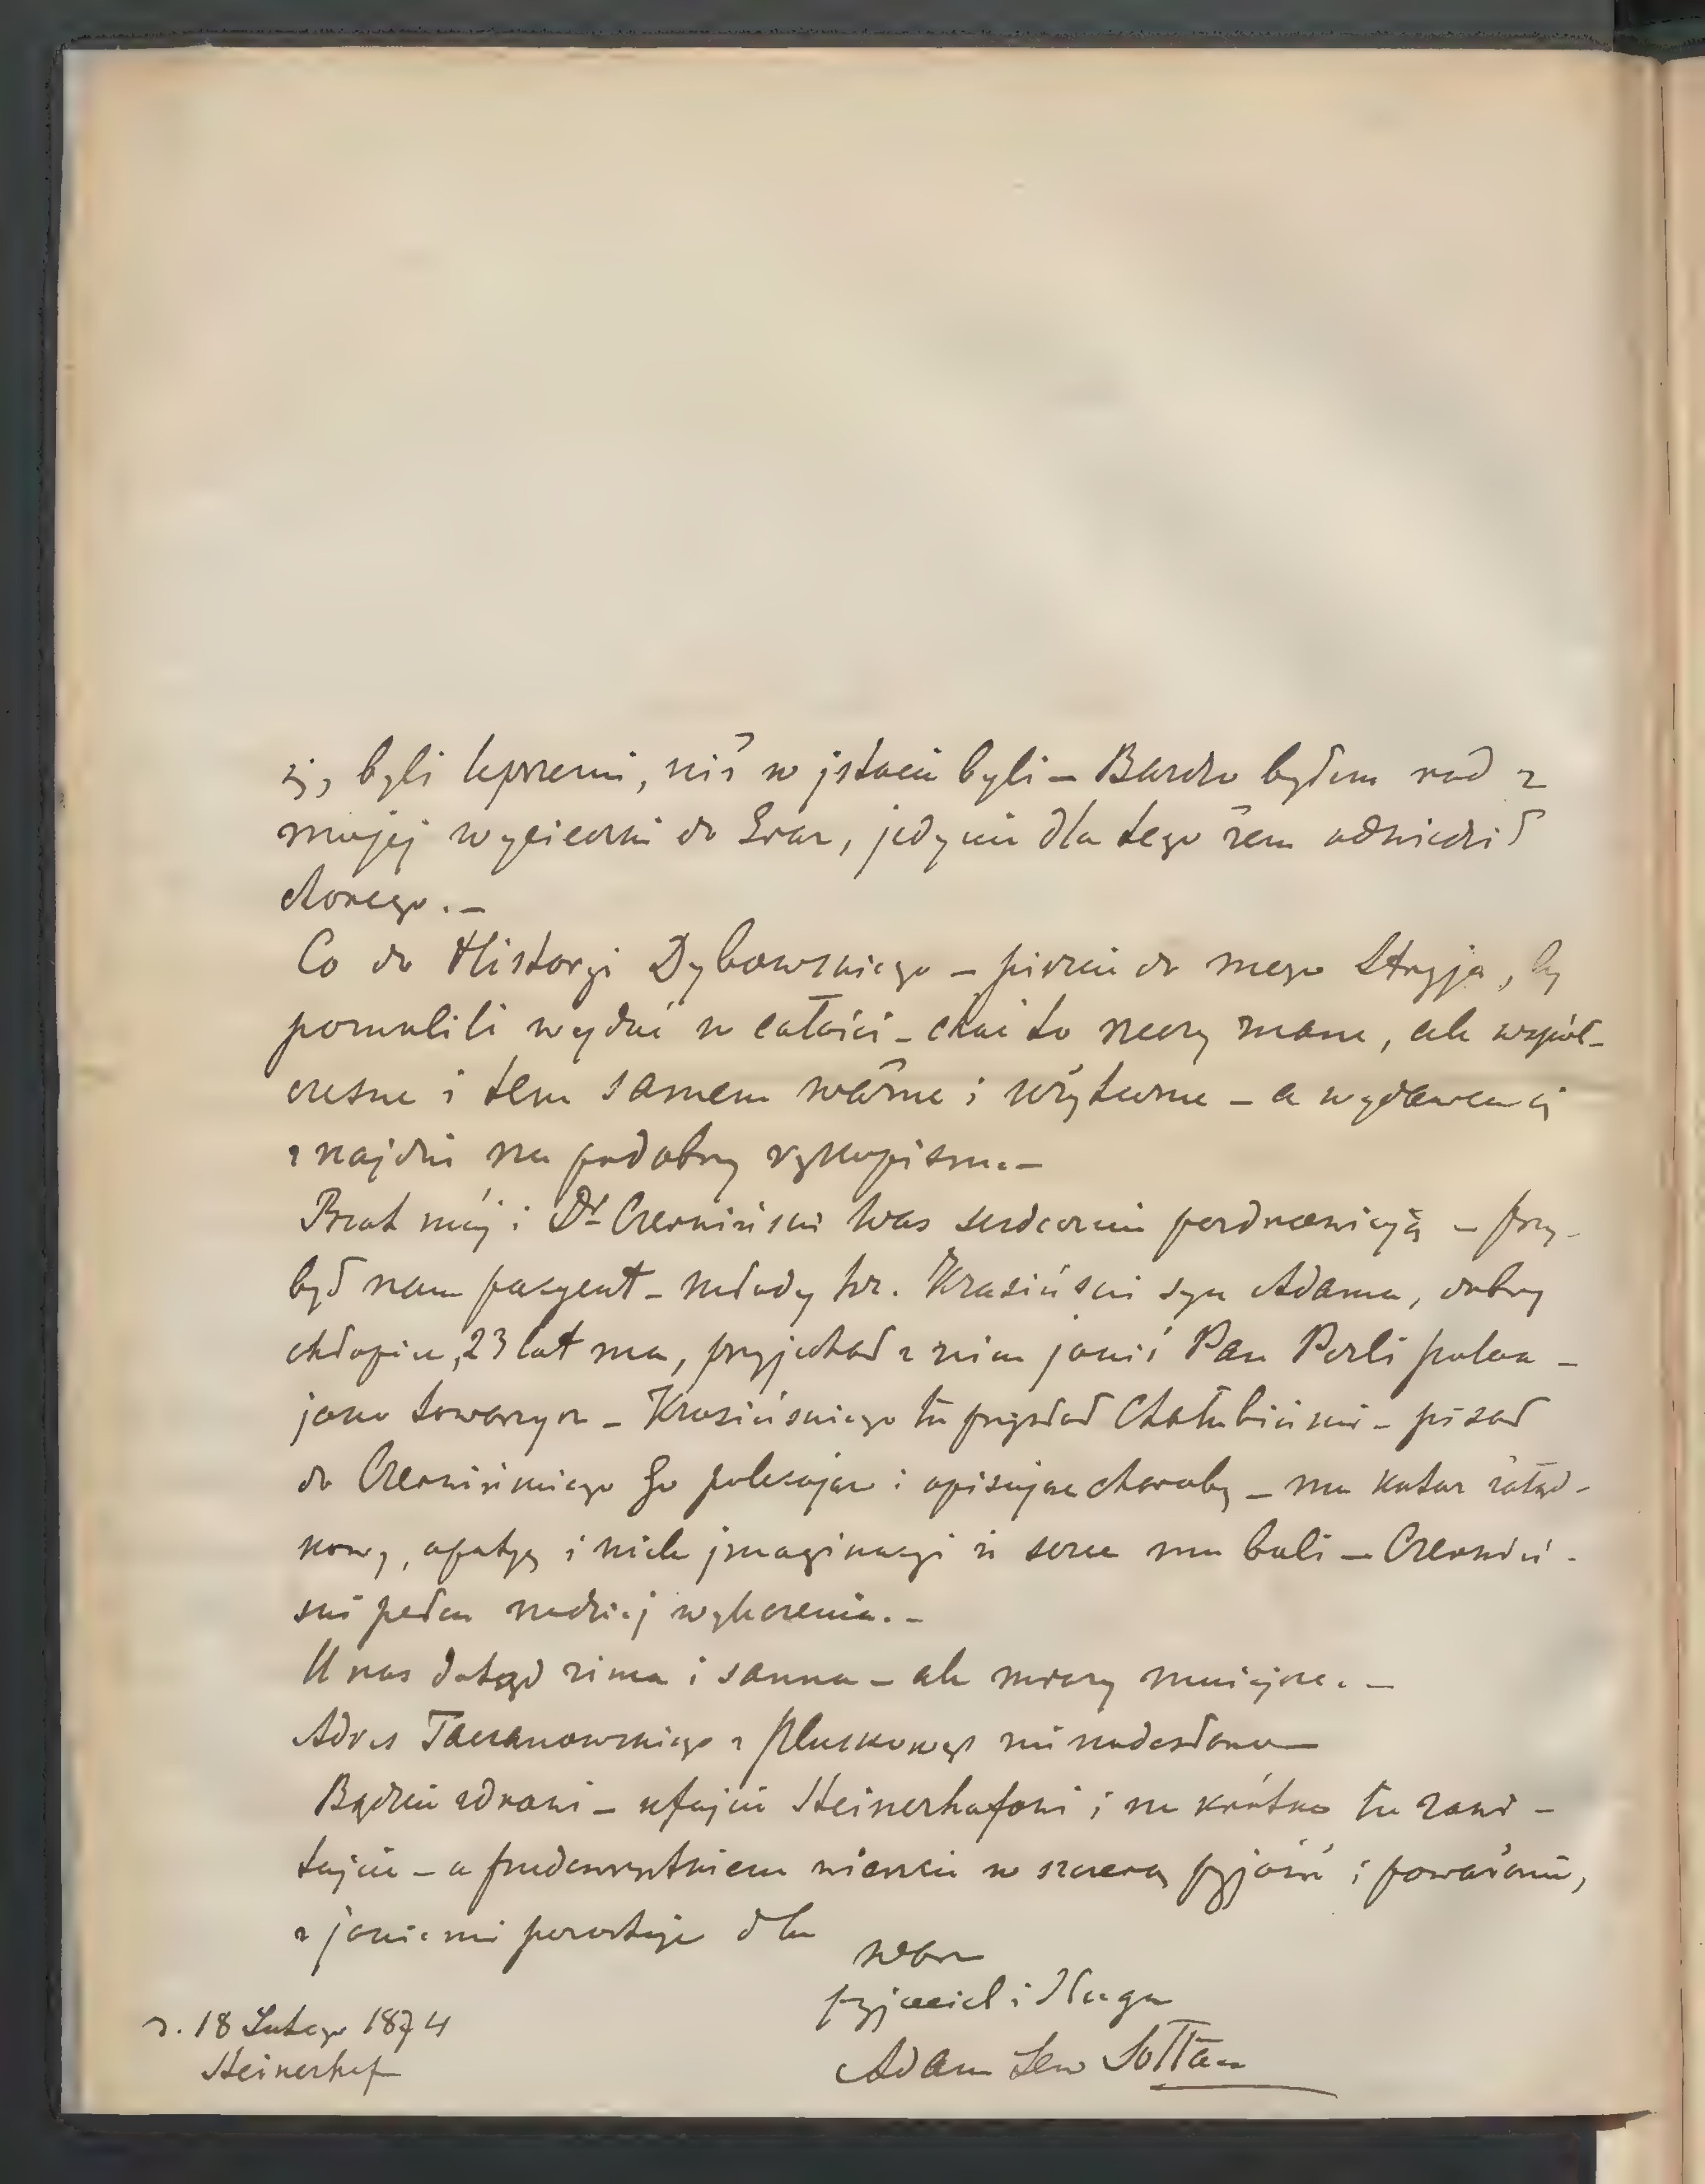 się, byli lepszemi, niż w istocie byli – Bardzo byłem rad z
mojej wycieczki do Graz, jedynie dla tego żem odwiedził
chorego. –
Co do Historyi Dybowskiego – piszcie do mego Stryja, by
pozwolili wydać w całości – choć to rzeczy znane, ale współ-
czesne i tem samem ważne i użyteczne – a wydawca się
znajdzie na podobny rękopism. –
Brat mój i Dr Czerwiński Was serdecznie pozdrawiają – przy-
był nam pacyent – młody hr. Krasiński syn Adama, dobry
chłopiec, 23 lat ma, przyjechał z nim jakiś Pan Perli polem –
jako towarzysz – Krasińskiego tu przysłał Chałubiński – pisał
do Czerwińskiego Go polecając i opisując chorobę – ma katar żołąd-
kowy, apatyę i wiele imaginacyi iż serce mu boli – Czerwiń-
ski pełen nadziei wyleczenia. –
U nas dotąd zima i sanna – ale mrozy mniejsze. –
Adres Taczanowskiego z Pluskowęs mi nadesłano –
Bądźcie zdrowi – ufajcie Steinerhofowi i na krótko tu zawi-
tajcie – a przedewszystkiem wierzcie w szczerą przyjaźń i poważanie,
z jakiemi pozostaję dla
Was
przyjaciel i sługa
Adam Lew Sołtan
d. 18 Lutego 1874
Steinerhof